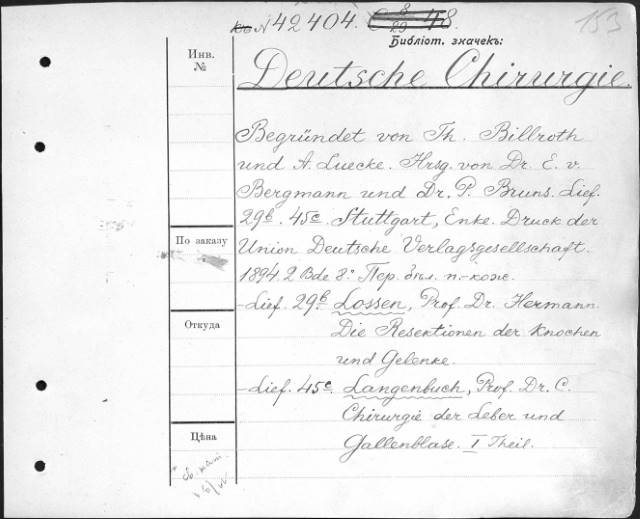 № 42404.
153
Библіот. значекъ:
Инв.
№
Deutsche Chirurgie.
Begründet von Th. Billroth
und A. Luecke. Hrsg. von Dr. E. v.
Bergmann und Dr. P. Bruns. Lief.
29b. 45c. Stuttgart, Enke. Druck der
Union Deutsche Verlagsgesellschaft.
1894. 2 Bde 8.° Пер. п.-кож.
По заказу
- Lief. 29b. Lossen, Prof. Dr. Hermann.
Die Resektionen der Knochen
und Gelenke.
Откуда
- Lief. 45c. Langenbuch, Prof. Dr. C.
Chirurgie der Leber und
Gallenblase. I Theil.
Цѣна